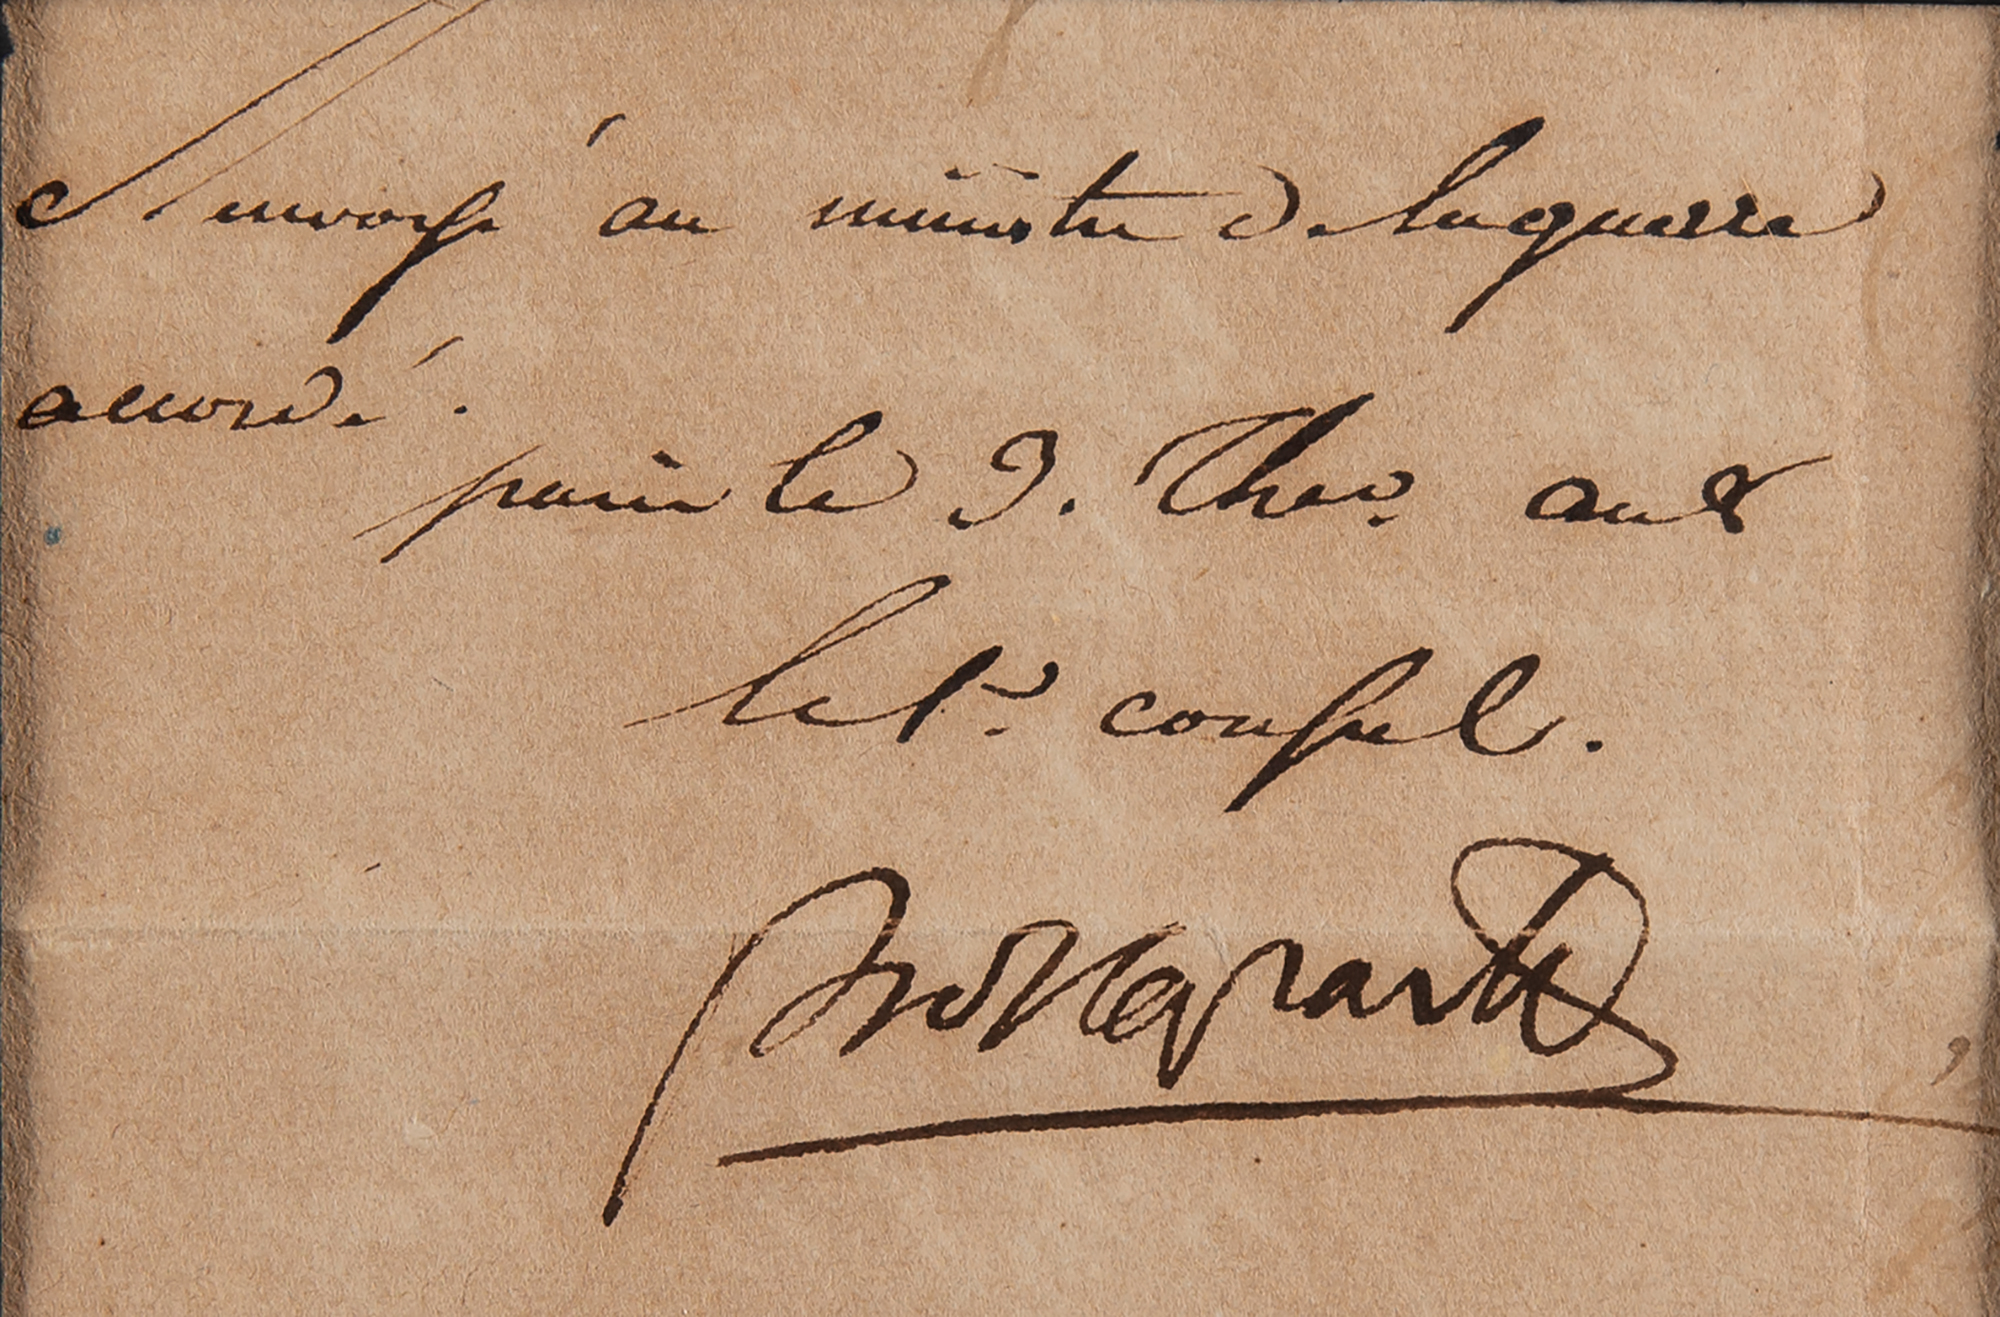 Renvoyé au ministre de la guerre
accordé.
paris le 9. Ther. an 8
le 1er consul.
Bonaparte